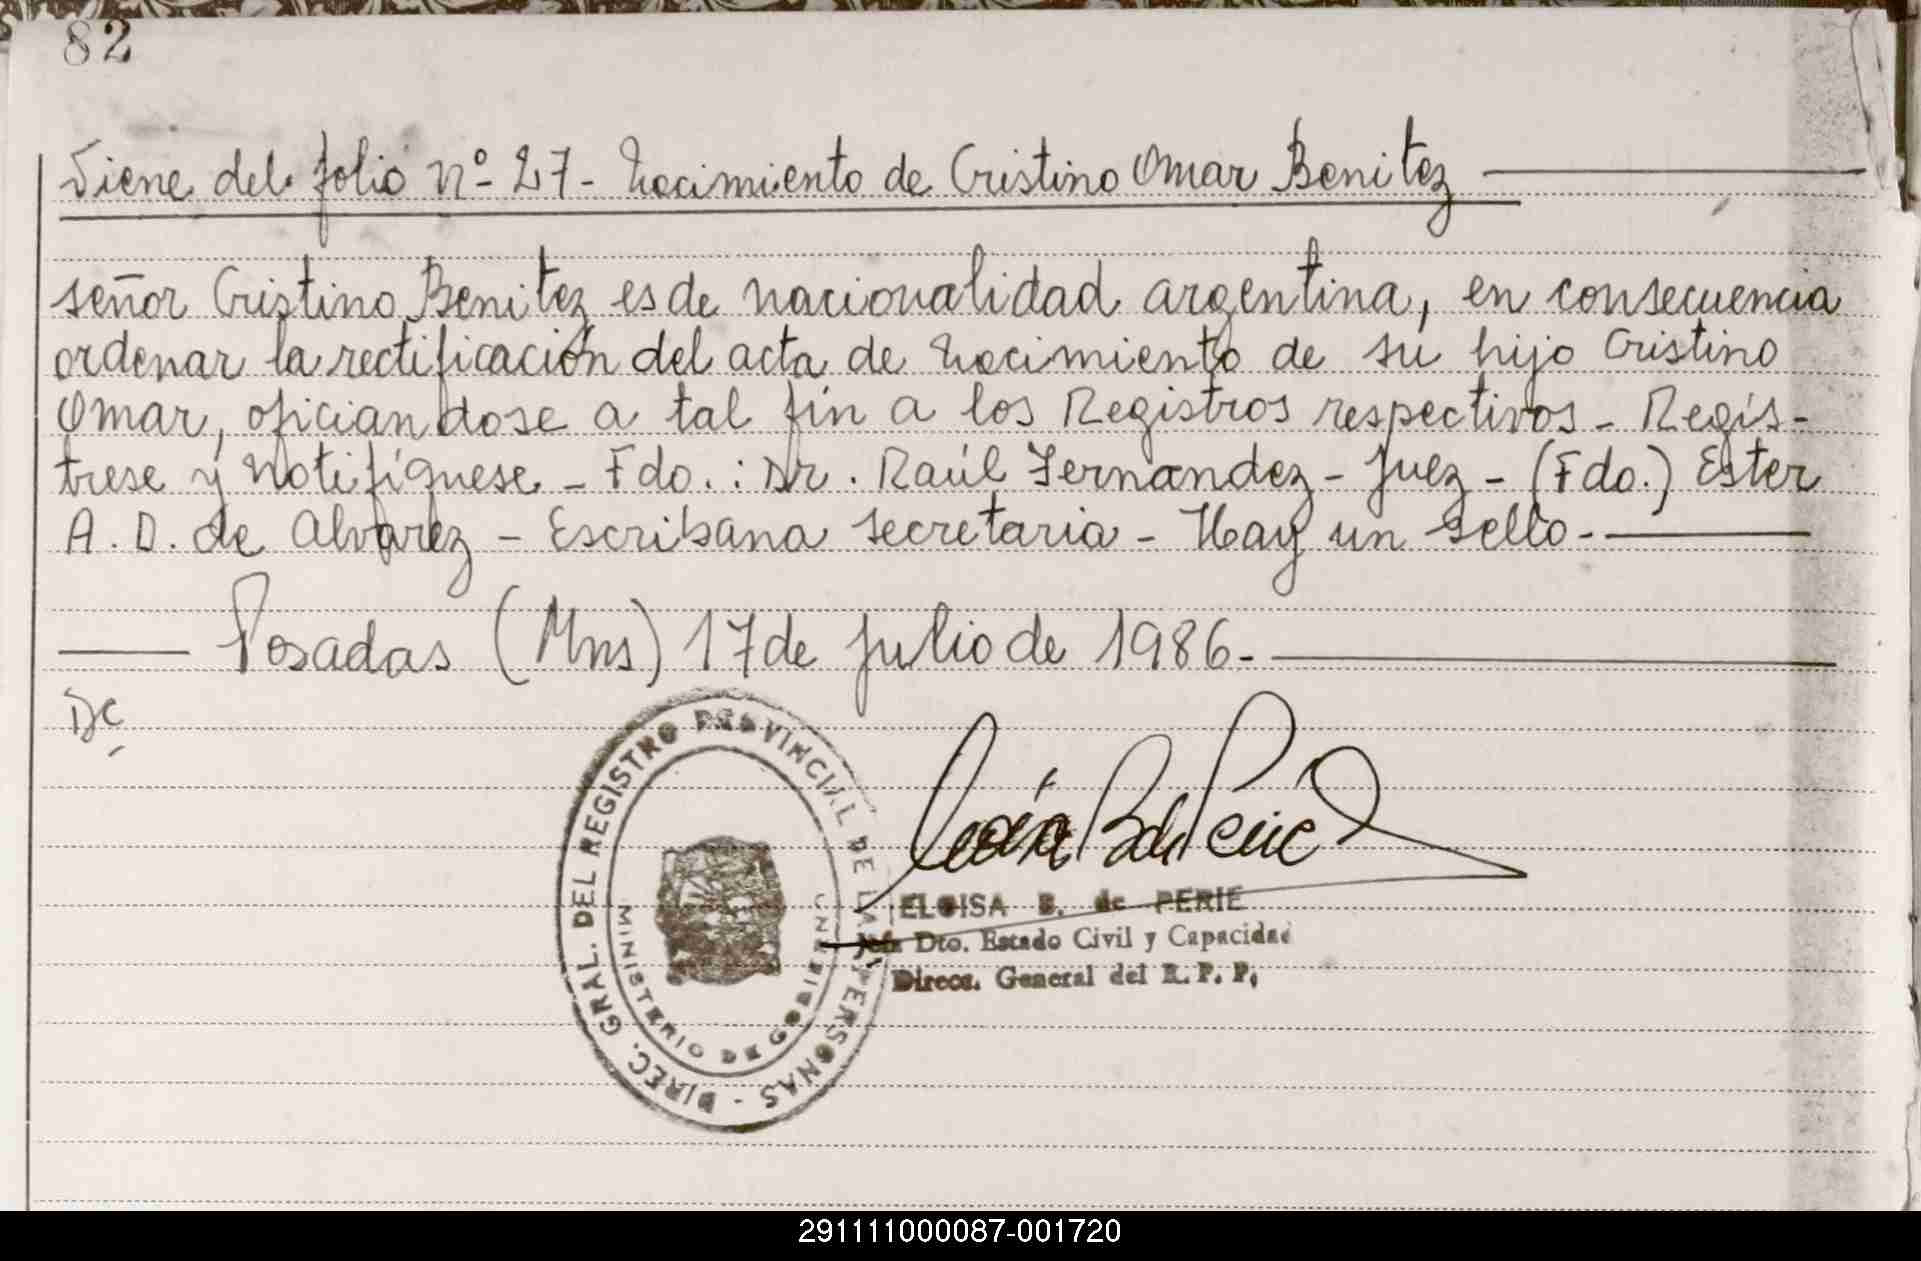 82
Viene del folio nº 27 - Nacimiento de Cristino Omar Benitez
señor Cristino Benitez es de nacionalidad argentina, en consecuencia
ordenar la rectificación del acta de Nacimiento de su hijo Cristino
Omar, oficiandose a tal fin a los Registros respectivos - Regís-
trese y Notifíquese - Fdo. : Dr. Raúl Fernandez - Juez - (Fdo.) Ester
A. D. de Alvarez - Escribana Secretaria - Hay un sello -
Posadas (Mns) 17 de Julio de 1986 -
DIREC. GRAL. DEL REGISTRO PROVINCIAL DE LAS PERSONAS -
MINISTERIO DE GOBIERNO
ELOISA B. de PERIE
Jefa Dto. Estado Civil y Capacidad
Direcc. General del R. P. P.
291111000087-001720